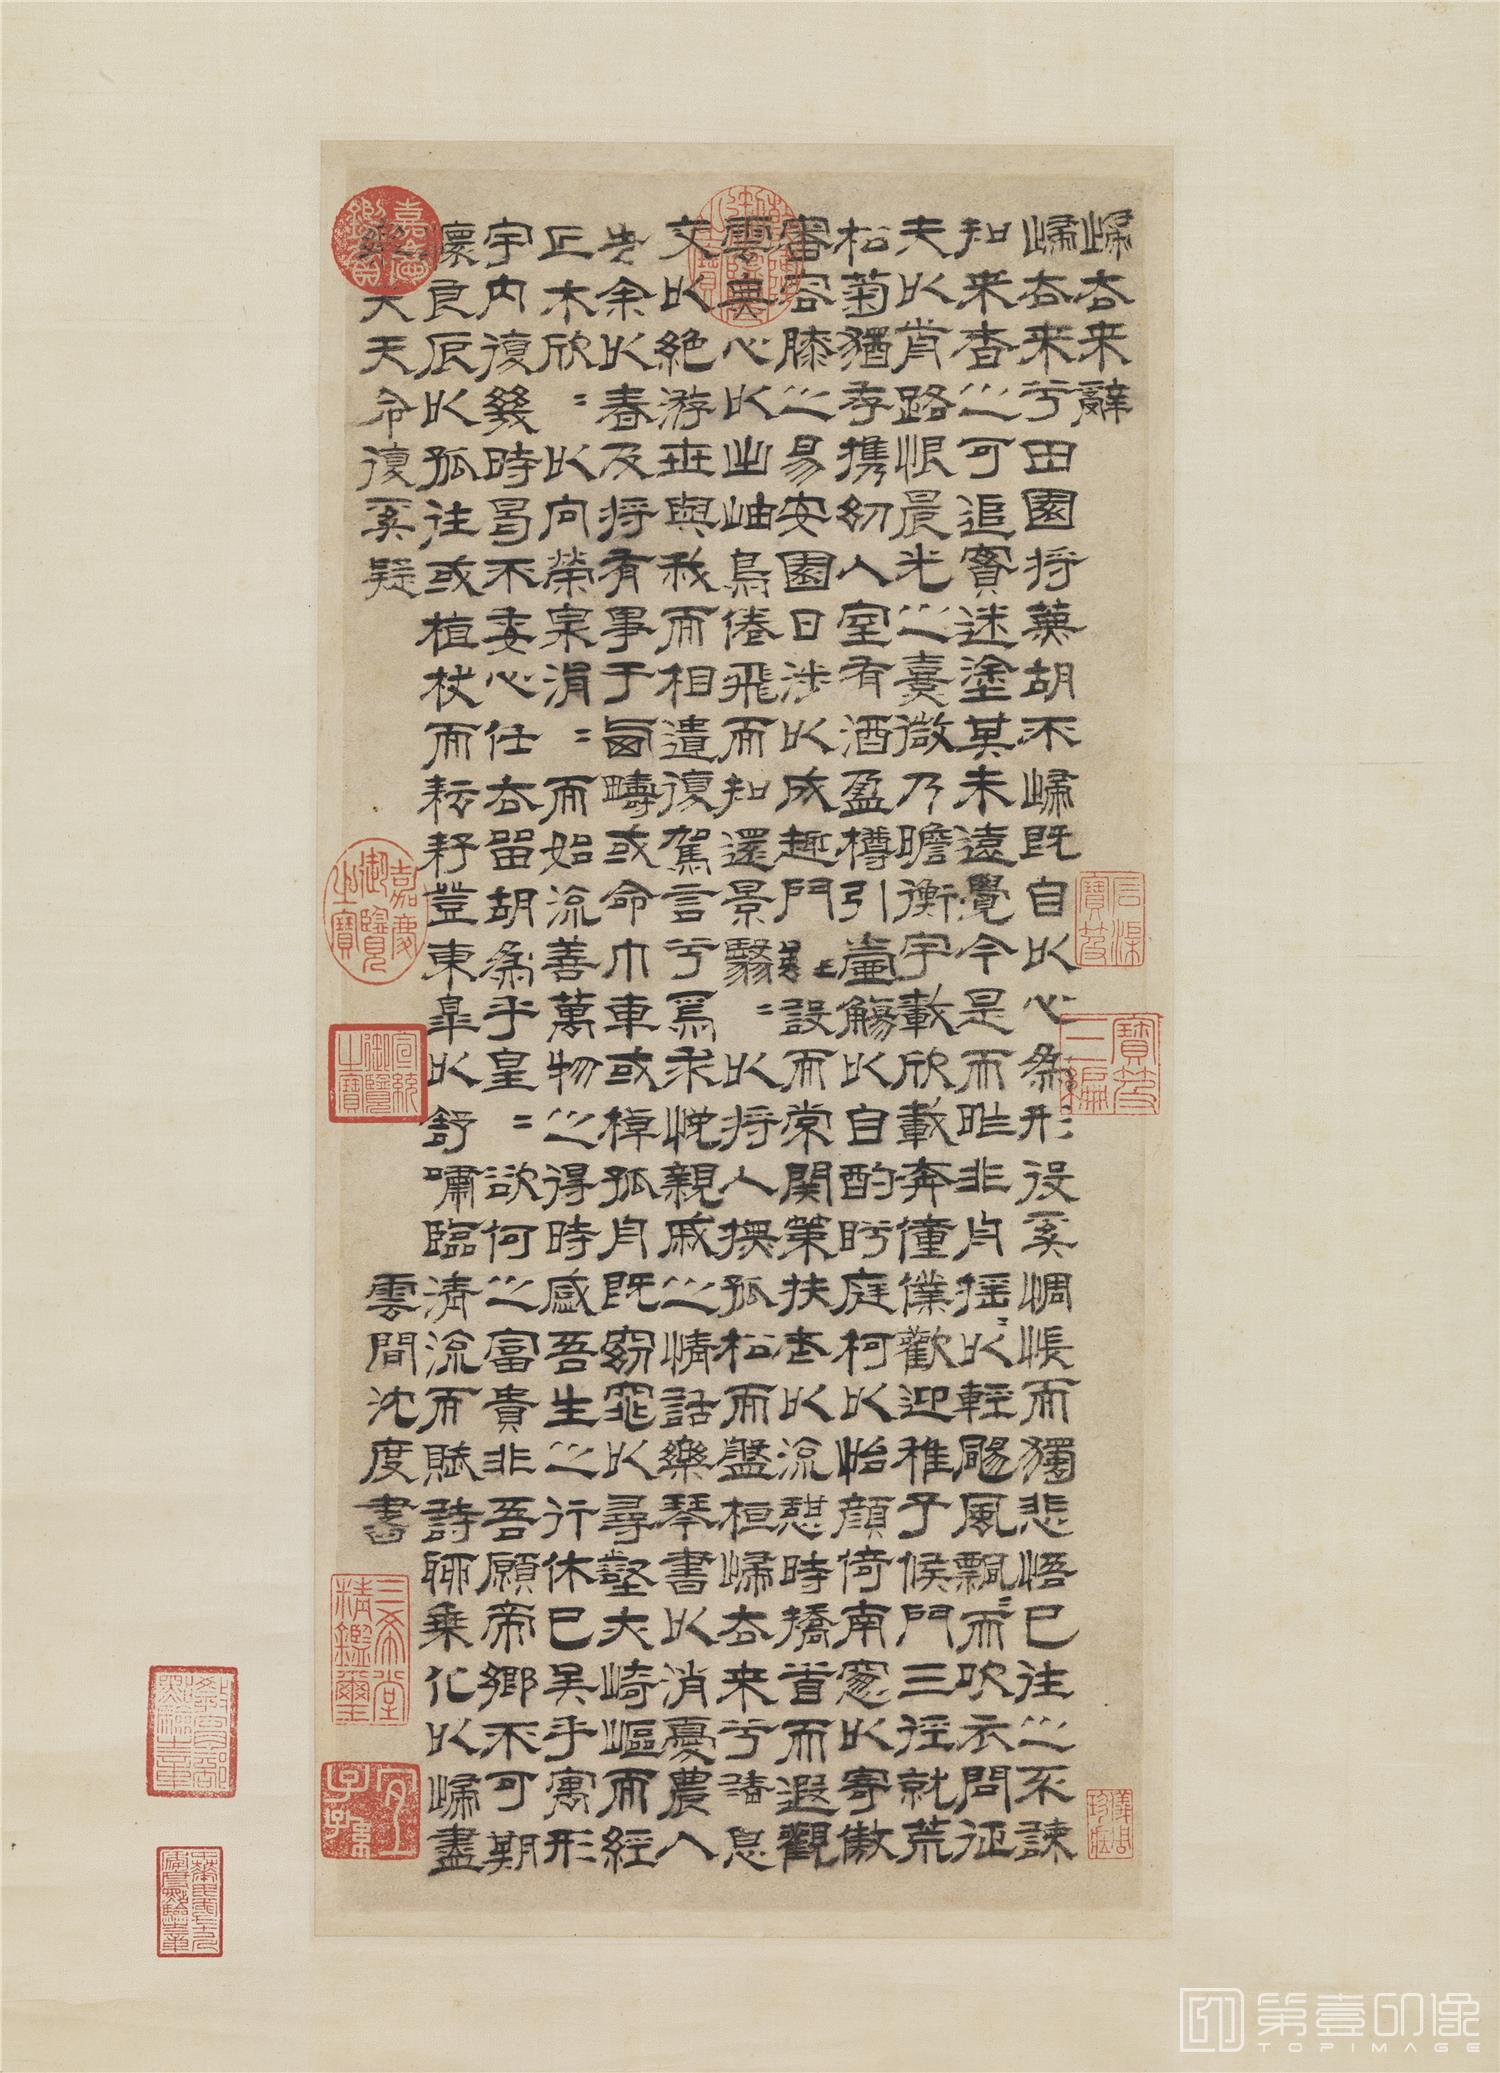 歸去来辭
歸去来兮田園将蕪胡不歸既自以心為形役奚惆悵而獨悲悟已往之不諫
知来者之可追實迷塗其未遠覺今是而昨非舟摇〻以輕颺風飄〻而吹衣問征
夫以前路恨晨光之熹微乃瞻衡宇載欣載奔僮僕歡迎稚子候門三徑就荒
松菊猶存携幼入室有酒盈樽引壺觴以自酌眄庭柯以怡顔倚南窓以寄傲
審容膝之易安園日涉以成趣門雖設而常関策扶老以流憩時矯首而遐觀
雲無心以出岫鳥倦飛而知還景翳〻以将入撫孤松而盤桓歸去来兮請息
交以絶游世與我而相遺復駕言兮焉求悦親戚之情話樂琴書以消憂農人
告余以春及将有事于西疇或命巾車或棹孤舟既窈窕以尋壑亦崎嶇而經
丘木欣〻以向榮泉涓〻而始流善萬物之得時感吾生之行休已矣乎寓形
宇内復幾時曷不委心任去留胡為乎皇〻欲何之富貴非吾願帝鄉不可期
懷良辰以孤往或植杖而耘耔登東皋以舒嘯臨清流而賦詩聊乗化以歸盡
樂夫天命復奚疑
雲間沈度書
嘉慶鑑賞
嘉慶御覽之寶
宣統御覽之寶
三希堂精鑑璽
宜子孫
石渠寶笈
寶笈三編
第壹印像
TOPIMAGE